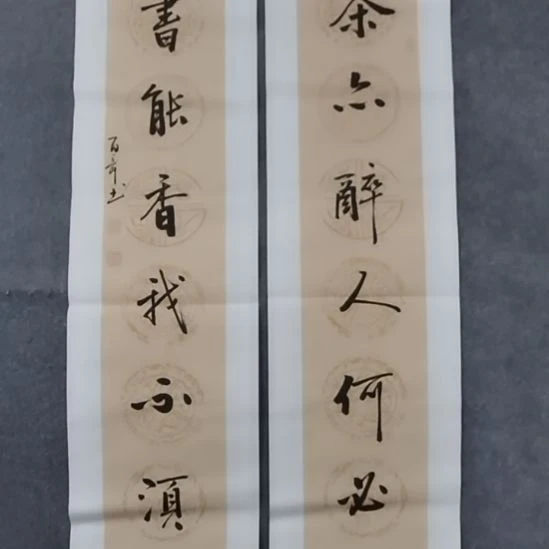 茶亦醉人何必
書能香我不須
百年書